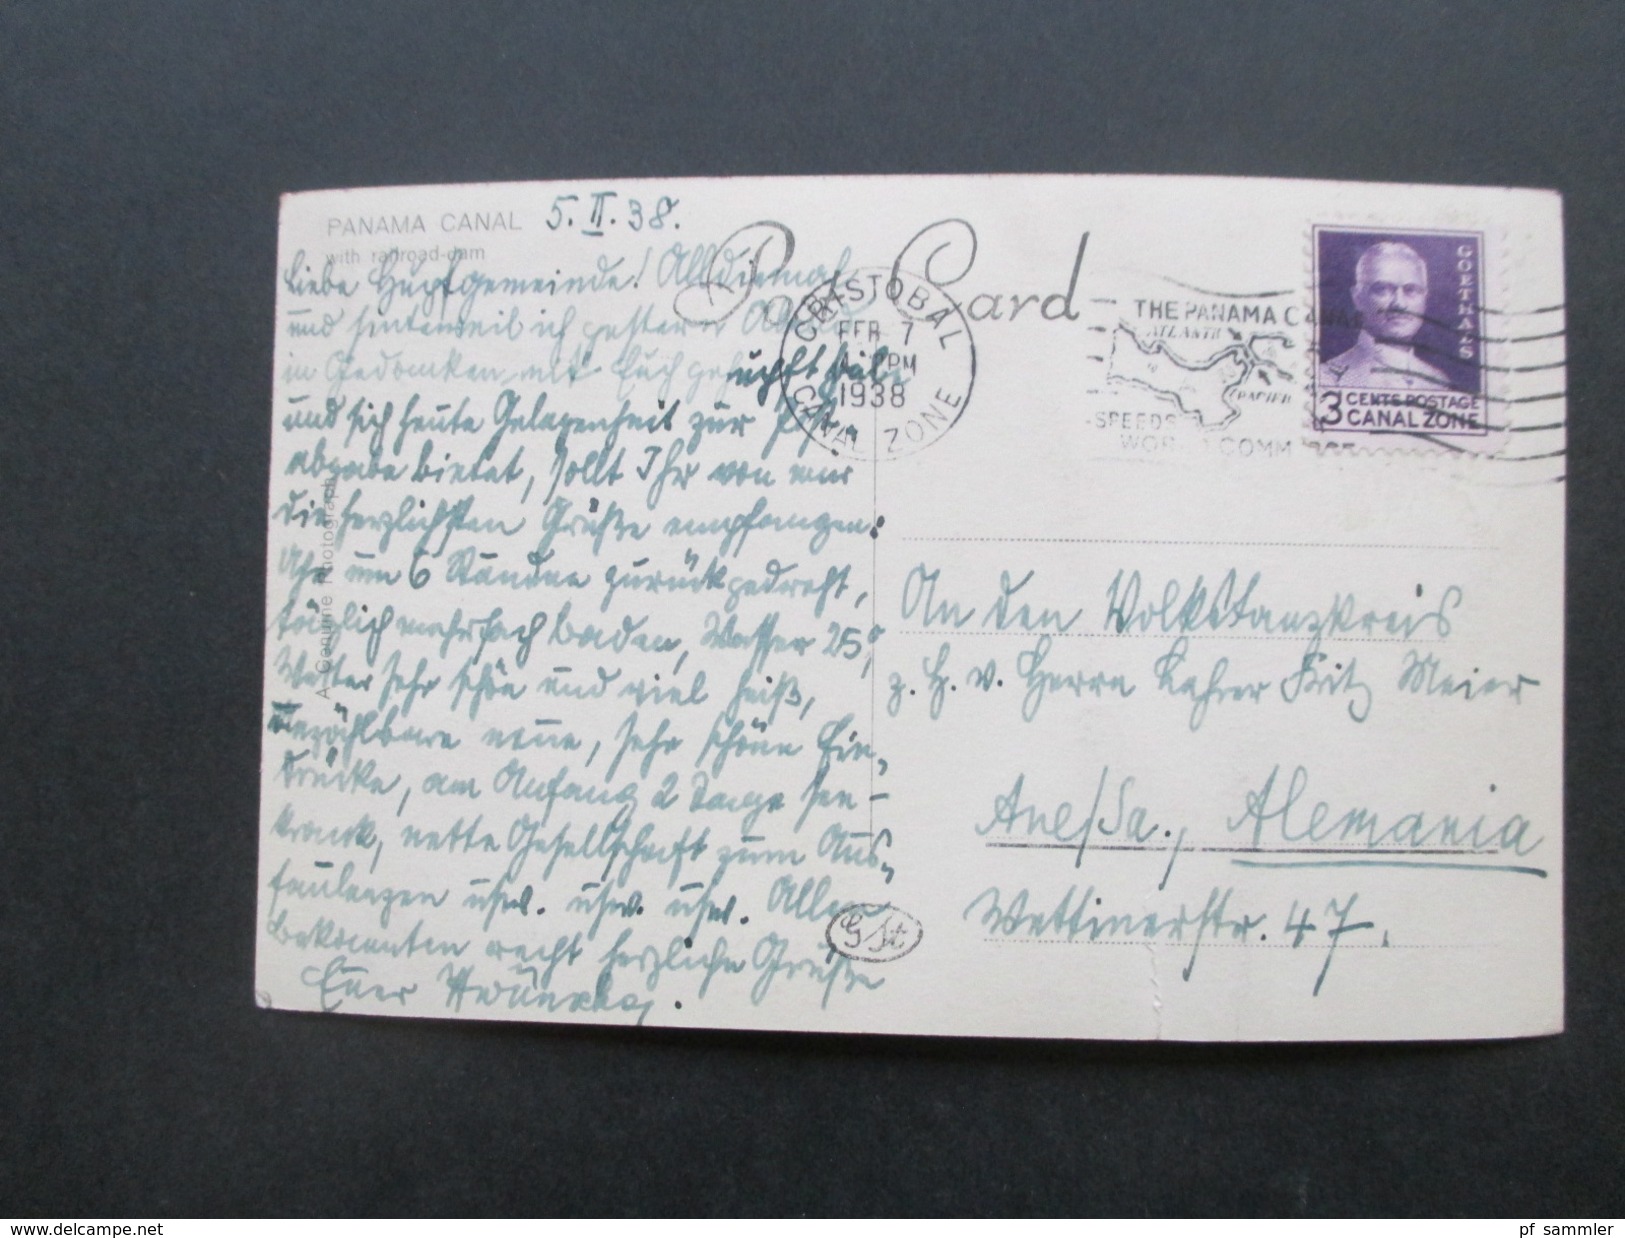 PANAMA CANAL
with railroad-dam
5. II. 38.
Post Card
CRISTOBAL
FEB 7
PM
1938
CANAL ZONE
THE PANAMA CANAL
ATLANTIC
PACIFIC
SPEEDS
WORLD COMMERCE
GOETHALS
3 CENTS POSTAGE
CANAL ZONE
Liebe Hupfgemeinde!
und hinterweil ich gestern Abend
in Gedanken mit Euch gehupft habe
und sich heute Gelegenheit zur Post-
abgabe bietet, sollt Ihr von mir
die herzlichsten Grüße empfangen.
Uhr um 6 Stunden zurückgedreht,
täglich mehrfach baden, Wasser 25°,
Wetter sehr schön und viel heiß,
unzählbare neue, sehr schöne Ein-
drücke, am Anfang 2 Tage see-
krank, nette Gesellschaft zum Aus-
faulenzen usw. usw. usw. Allen
Bekannten recht herzliche Grüße
Euer
GSt
An den Volkstanzkreis
z. H. v. Herrn Lehrer Fritz Meier
Aue/Sa., Alemania
Wettinerstr. 47.
delcampe.net
pf_sammler